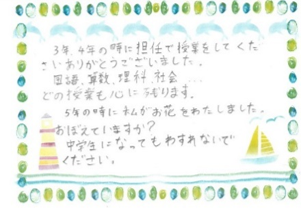 3年、4年の時に担任で授業をしてくだ
さいありがとうございました。
国語、算数、理科、社会...
どの授業も心にのこります。
5年の時に私がお花をわたしました。
おぼえていますか?
中学生になってもわすれないで
ください。